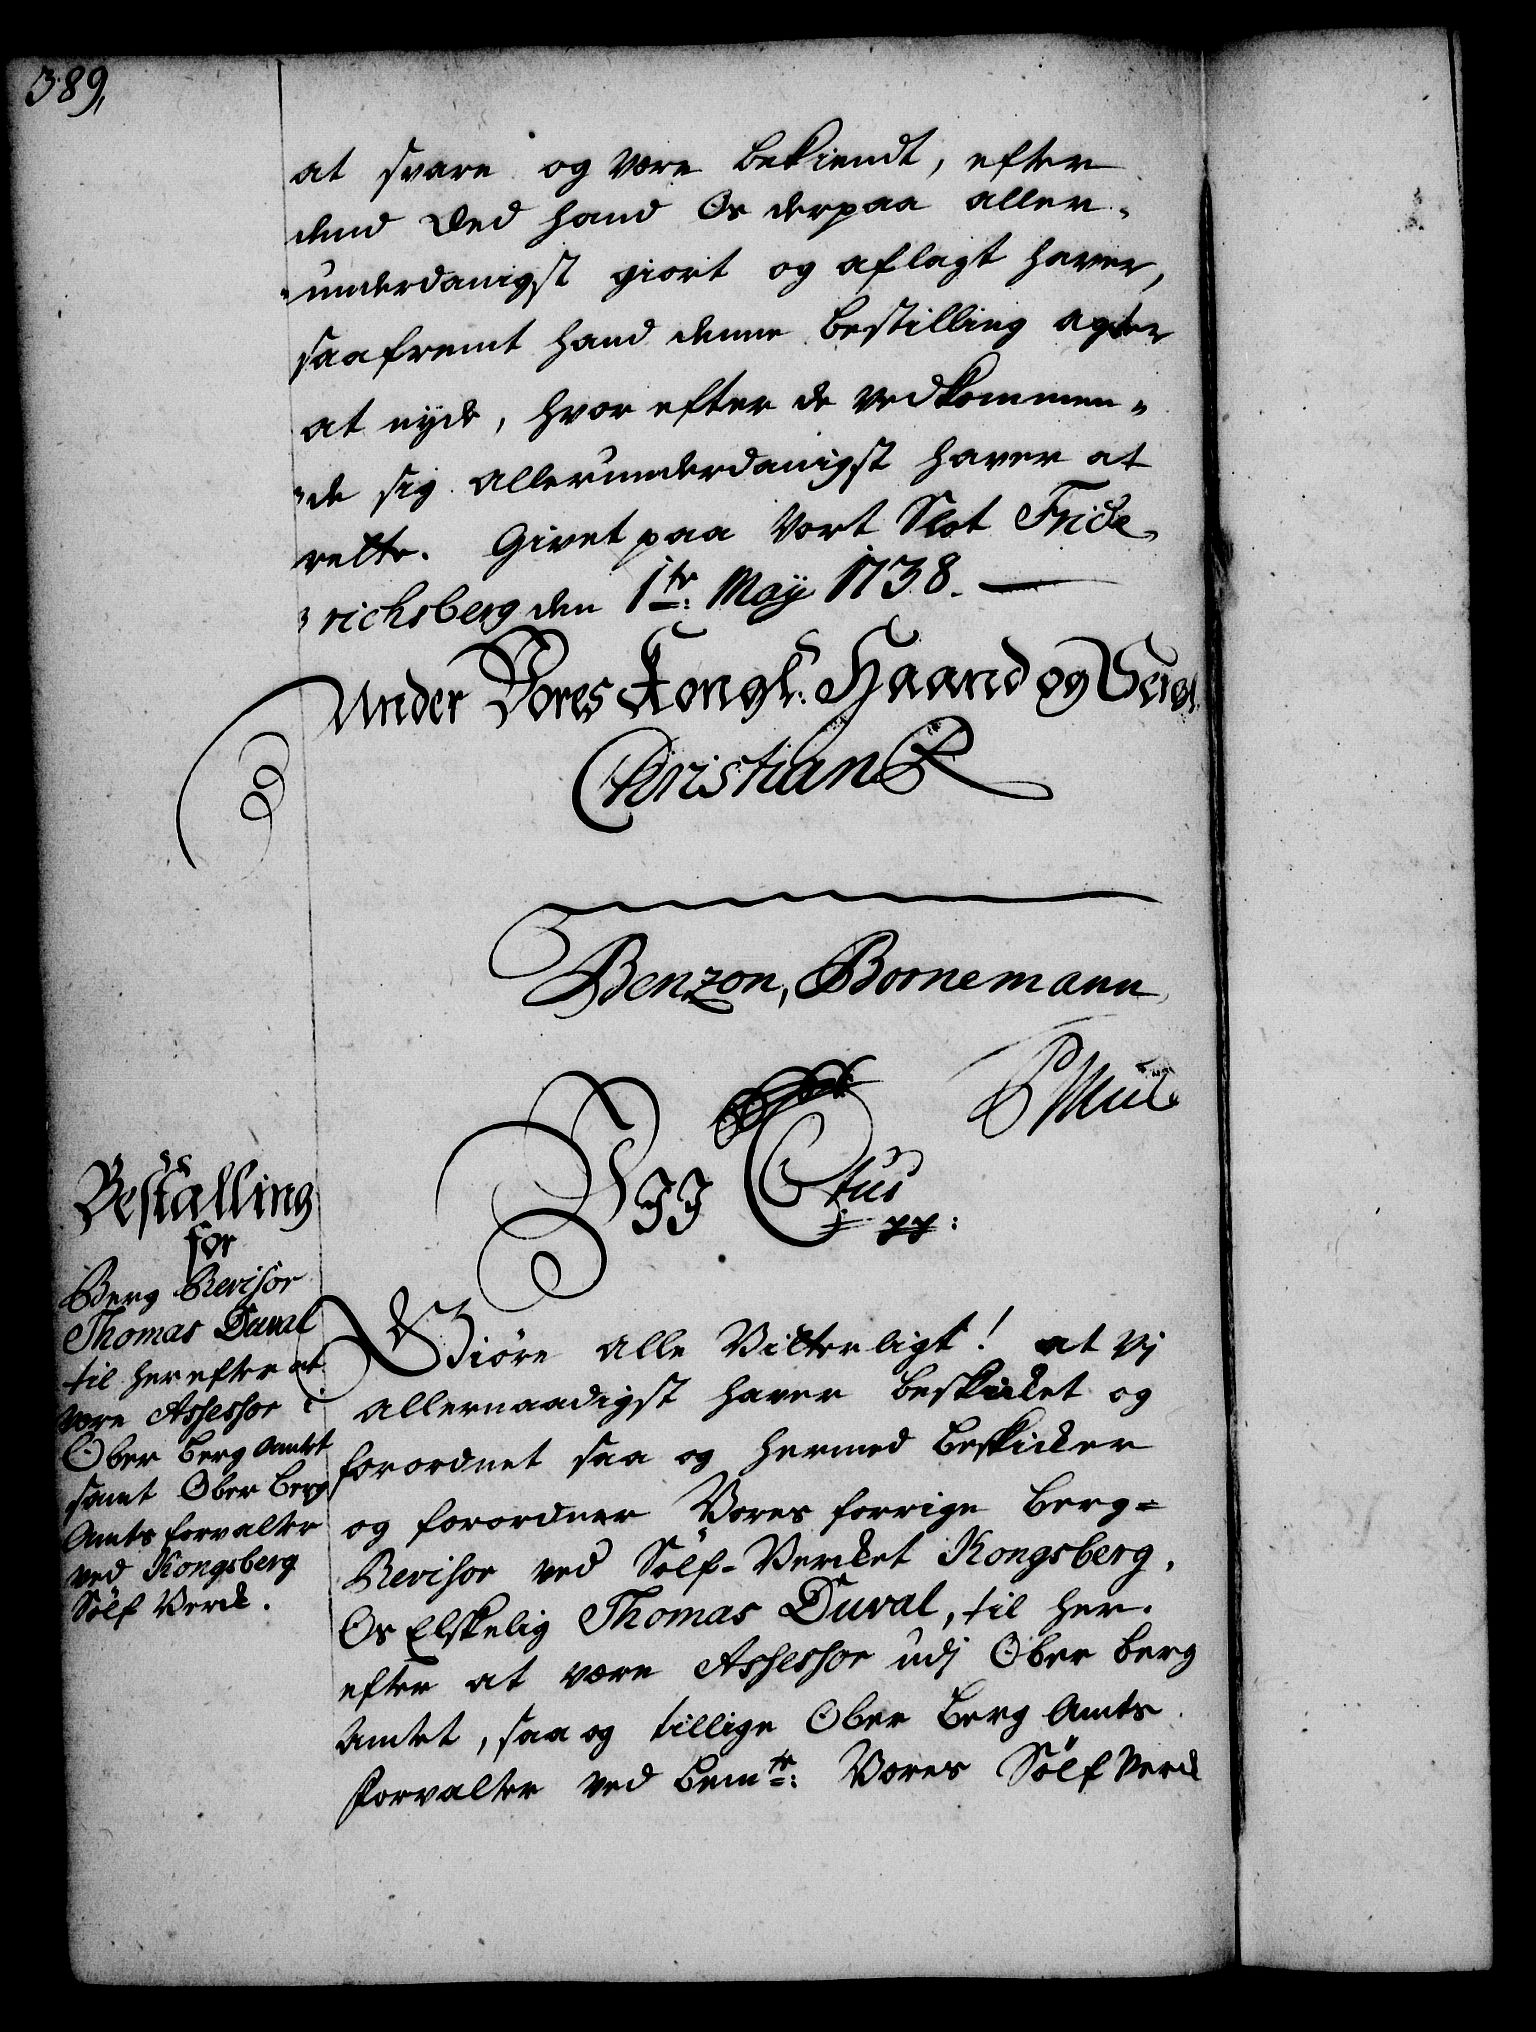 389,
at svare og være bekiendt, efter
dend Eed hand Os derpaa aller-
-underdanigst giort og aflagt haver,
saafremt hand denne bestilling agter
at nyde, hvor efter de vedkommen-
-de sig allerunderdanigst haver at
rette. Givet paa Vort Slot Fride-
-richsberg den 1te: Maÿ 1738. —
Under Vores Kongl: Haand og Seigl.
Christian R
Benzon, Bornemann
P Mule
Vij C 6tus
pp:
Bestalling
for
Berg Revisor
Thomas Duval
til herefter at
være Assessor i
Ober Berg Amtet
samt Ober Berg
Amts forvalter
ved Kongsberg
Sölf Verck.
Giöre alle Vitterligt! at Vj
allernaadigst haver beskicket og
forordnet saa og hermed beskicker
og forordner Vores forrige Berg=
Revisor ved Sölf-Vercket Kongsberg,
Os Elskelig Thomas Duval, til her-
efter at være Assessor udj Ober Berg
Amtet, saa og tillige Ober Berg Amts
Forvalter ved bemte: Vores Sölf Verck